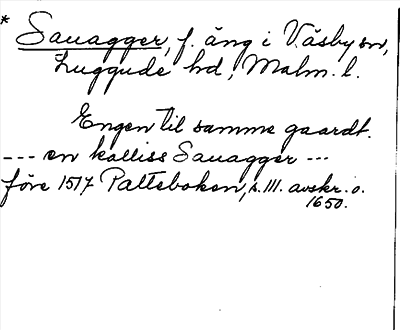 * Sauagger, f. äng i Väsby sn,
Luggude hd, Malm. l.
Engen til samme gaardt.
--- en kalliss Sauagger ---
före 1517 Palteboken, s. 111. avskr. o.
1650.